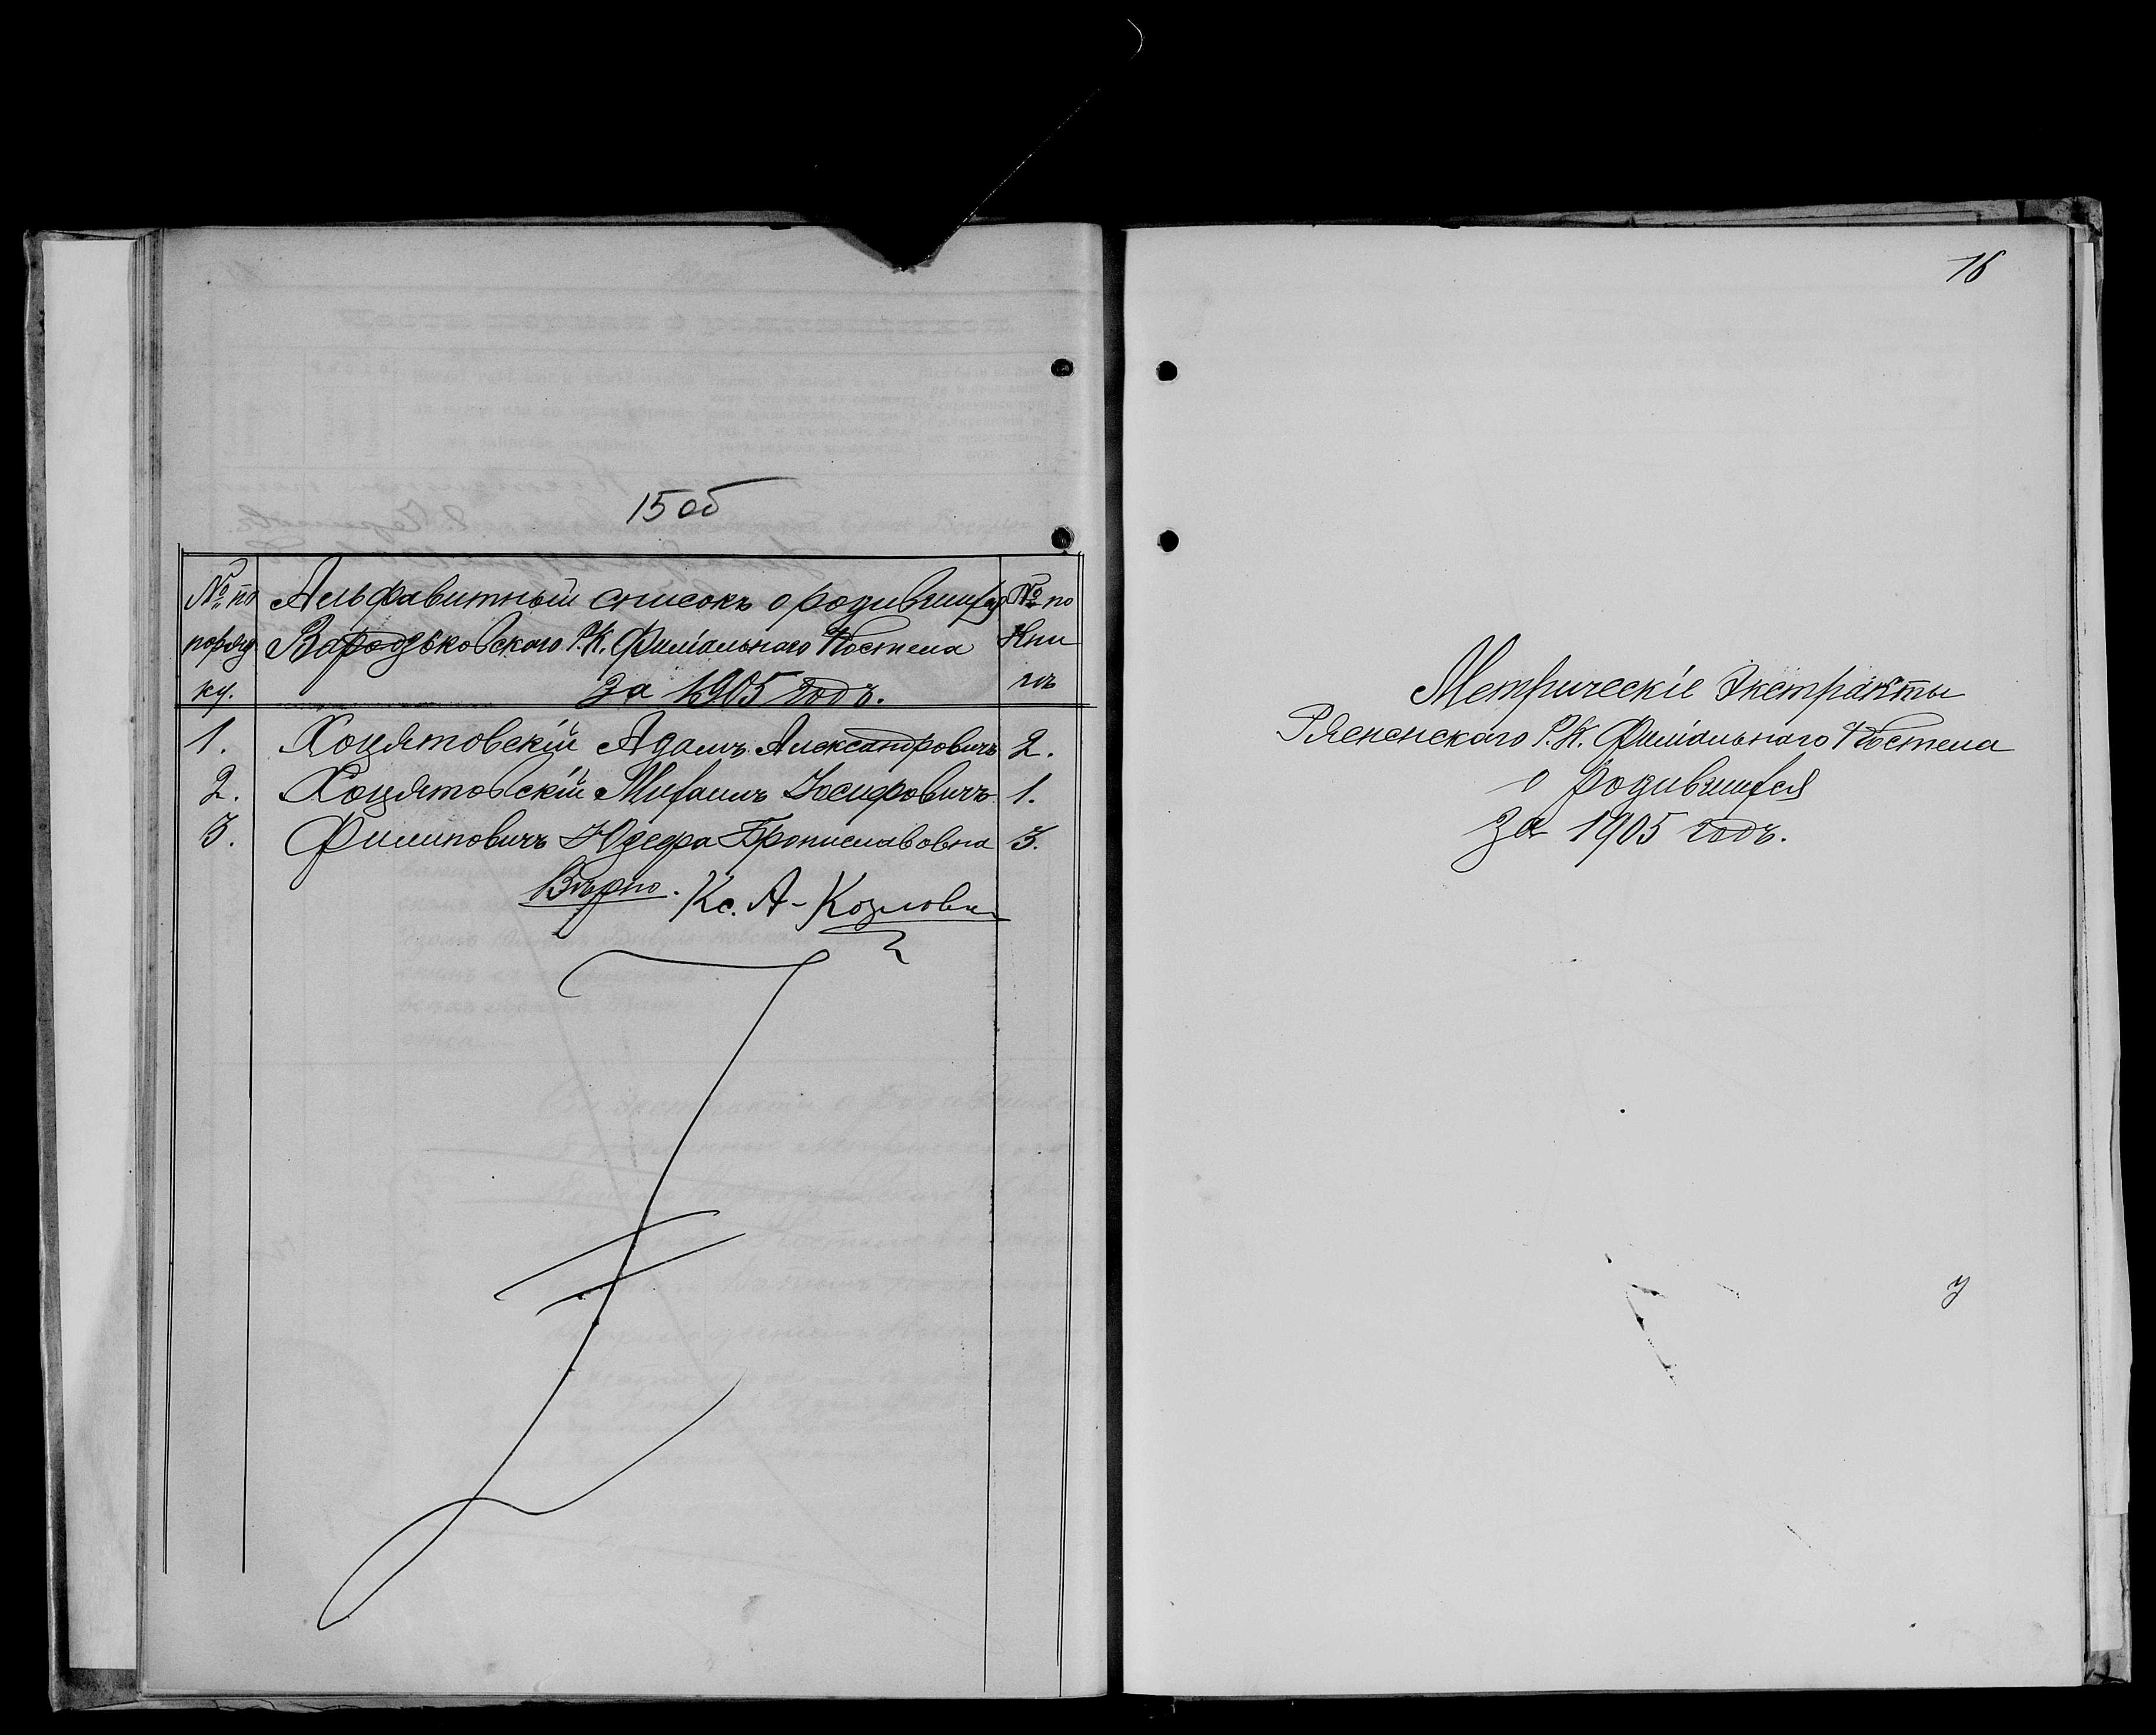 15 об
№ по Альфавитный списокъ о родившихся № по
поряд Вародзьковскаго Р.К. Филіальнаго Костела Кни
ку. За 1905 годъ. гѣ
1. Хоцятовскій Адамъ Александровичъ 2.
2. Хоцятовскій Михаилъ Іосифовичъ 1.
3. Филиповичъ Юзефа Брониславовна 3.
Вѣрно. Кс. А. Козловск
16
Метрическіе Экстракты
Рясненскаго Р.К. Филіальнаго Костела
о родившихся
за 1905 годъ.